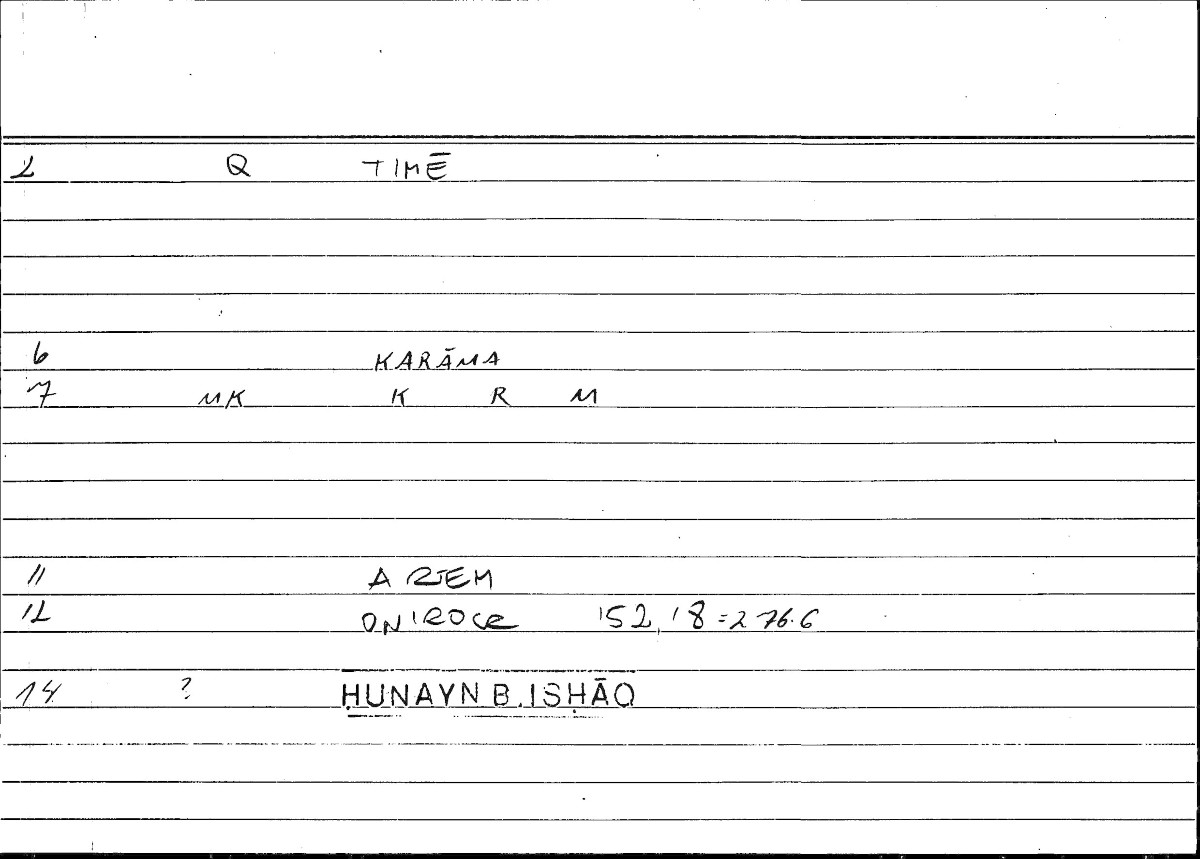 2 Q TIMĒ
6 KARĀMA
7 MK K R M
11 ARTEM
12 ONIROCR 152,18=276.6
14 ? ḤUNAYN B.ISḤĀQ